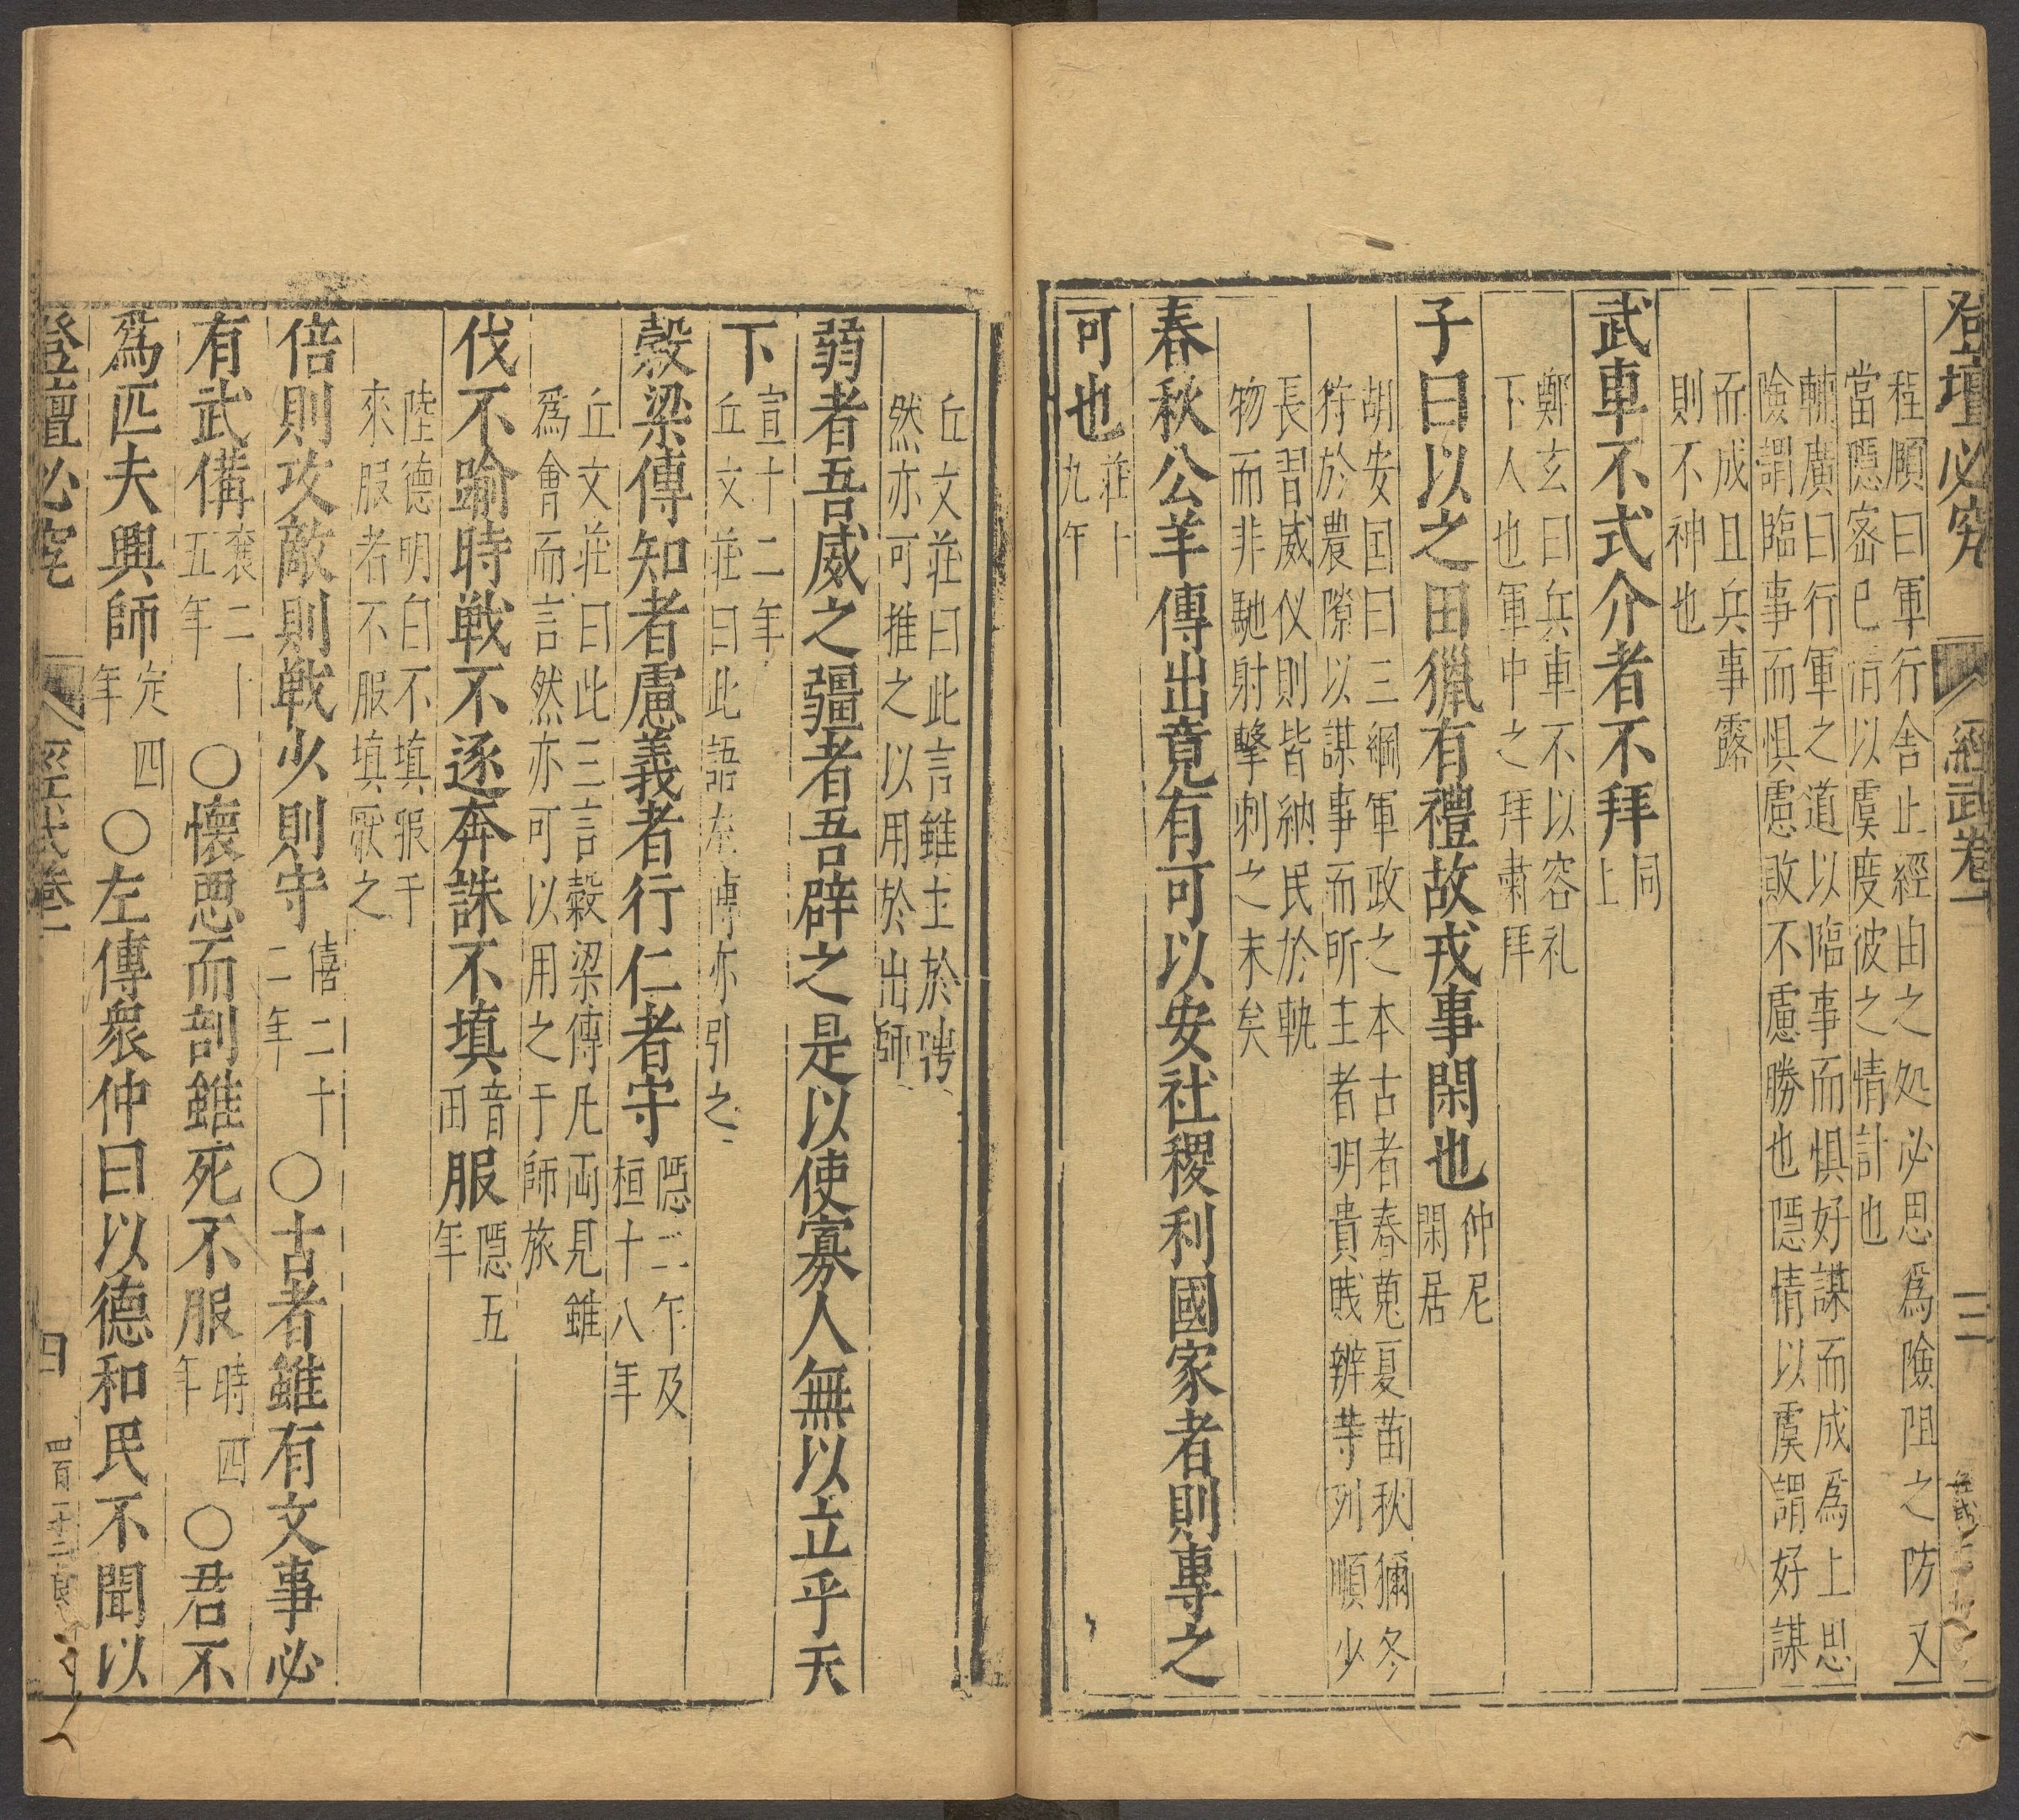 登壇必究　經武卷一　三
程頤曰軍行舍止經由之処必思爲險阻之防又
當隱密巳情以虞度彼之情計也
輔廣曰行軍之道以臨事而惧好謀而成爲上思
險謂臨事而惧慮敗不慮勝也隱情以虞謂好謀
而成且兵事露
則不神也
武車不式介者不拜同上
鄭玄曰兵車不以容礼
下人也軍中之拜肅拜
子曰以之田獵有禮故戎事閑也仲尼閑居
胡安国曰三綱軍政之本古者春蒐夏苗秋獮冬
狩於農隙以謀事而所主者明貴賎辨等列順少
長習威仪則皆納民於軌
物而非馳射擊刺之末矣
春秋公羊傳出竟有可以安社稷利國家者則專之
可也莊十九年
丘文莊曰此言雖主於聘
然亦可推之以用於出師
弱者吾威之疆者吾辟之是以使寡人無以立乎天
下宣十二年
丘文莊曰此語左傳亦引之
穀梁傳知者慮義者行仁者守隱二年及桓十八年
丘文莊曰此三言穀梁傳凡両見雖
爲會而言然亦可以用之于師旅
伐不踰時戦不逐奔誅不填音田服隱五年
陸德明曰不填服于
來服者不服填厭之
倍則攻敵則戦少則守僖二十二年○古者雖有文事必
有武備襄二十五年○懷惡而討雖死不服時四年○君不
爲匹夫興師定四年○左傳衆仲曰以德和民不聞以
登壇必究　經武卷一　四　四百二十二